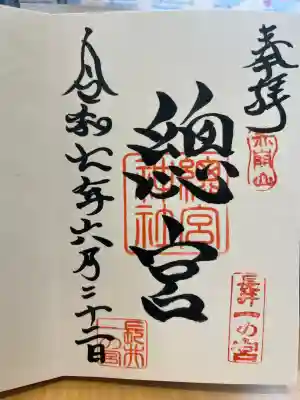 奉拝
赤崩山
長井
一の宮
總宮
總宮
神社
令和六年六月二十二日
長井